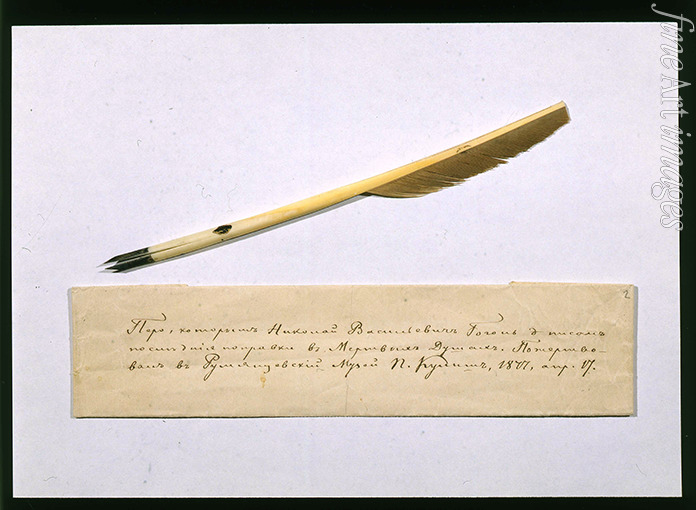 fine Art images
2
Перо, которымъ Николай Васильевичъ Гоголь дѣлалъ
послѣднія поправки въ Мертвыхъ Душахъ. Пожертво-
валъ въ Румянцовскій Музей П. Кулишъ, 1877, апр. 17.